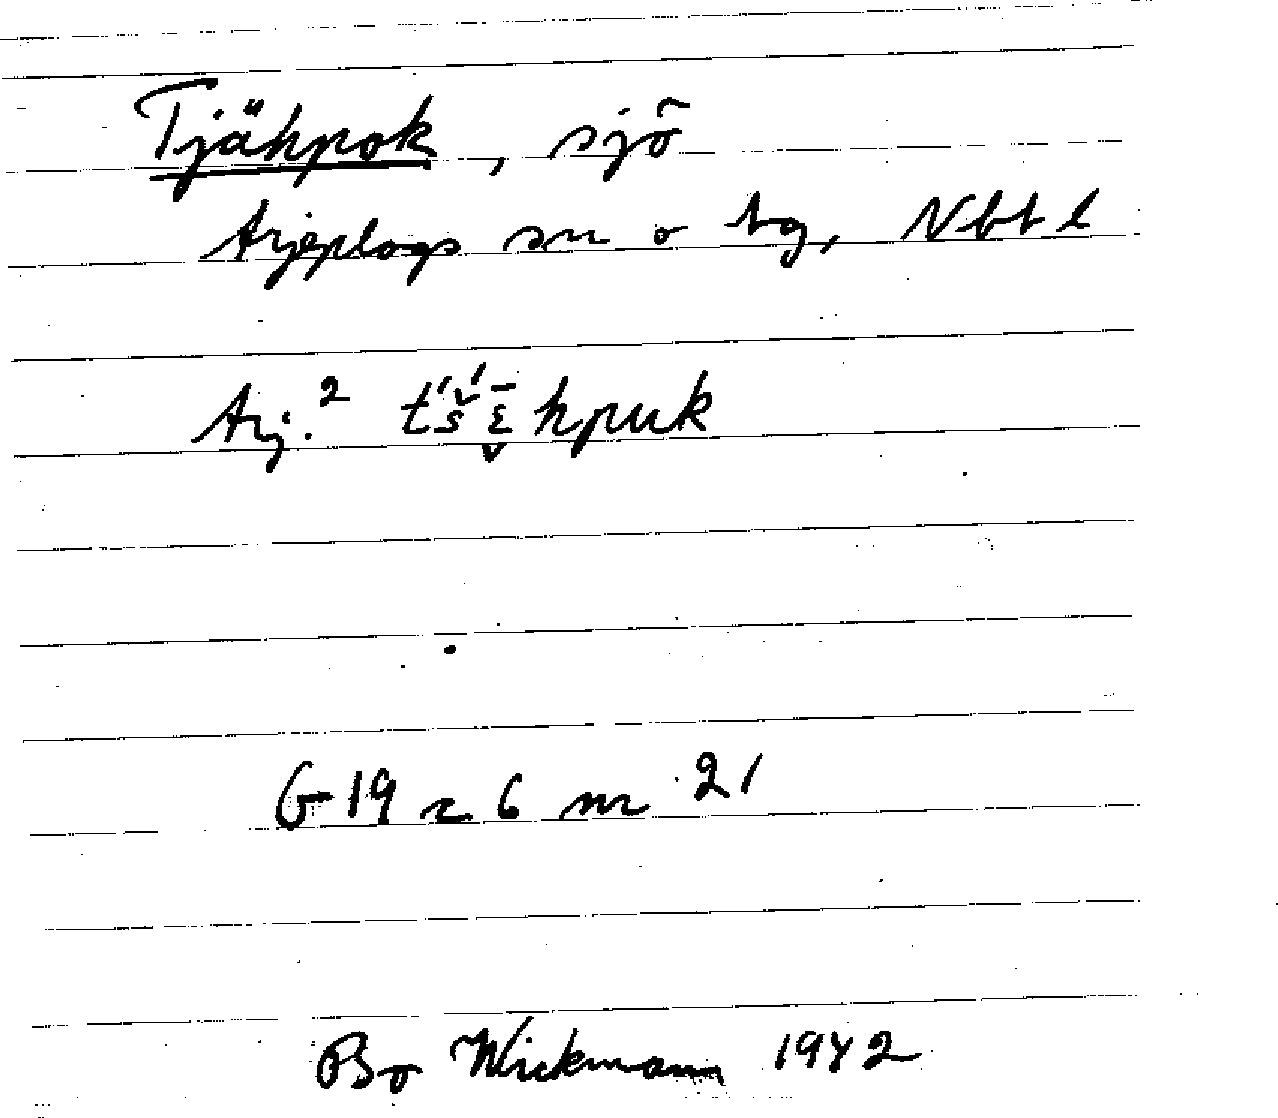 Tjähpok, sjö
Arjeplogs sn o tg, Nbt l
Arj.² t́š́ɛ̬̄hpuk
G 19 c 6 nr 21
Bo Wickmann 1942